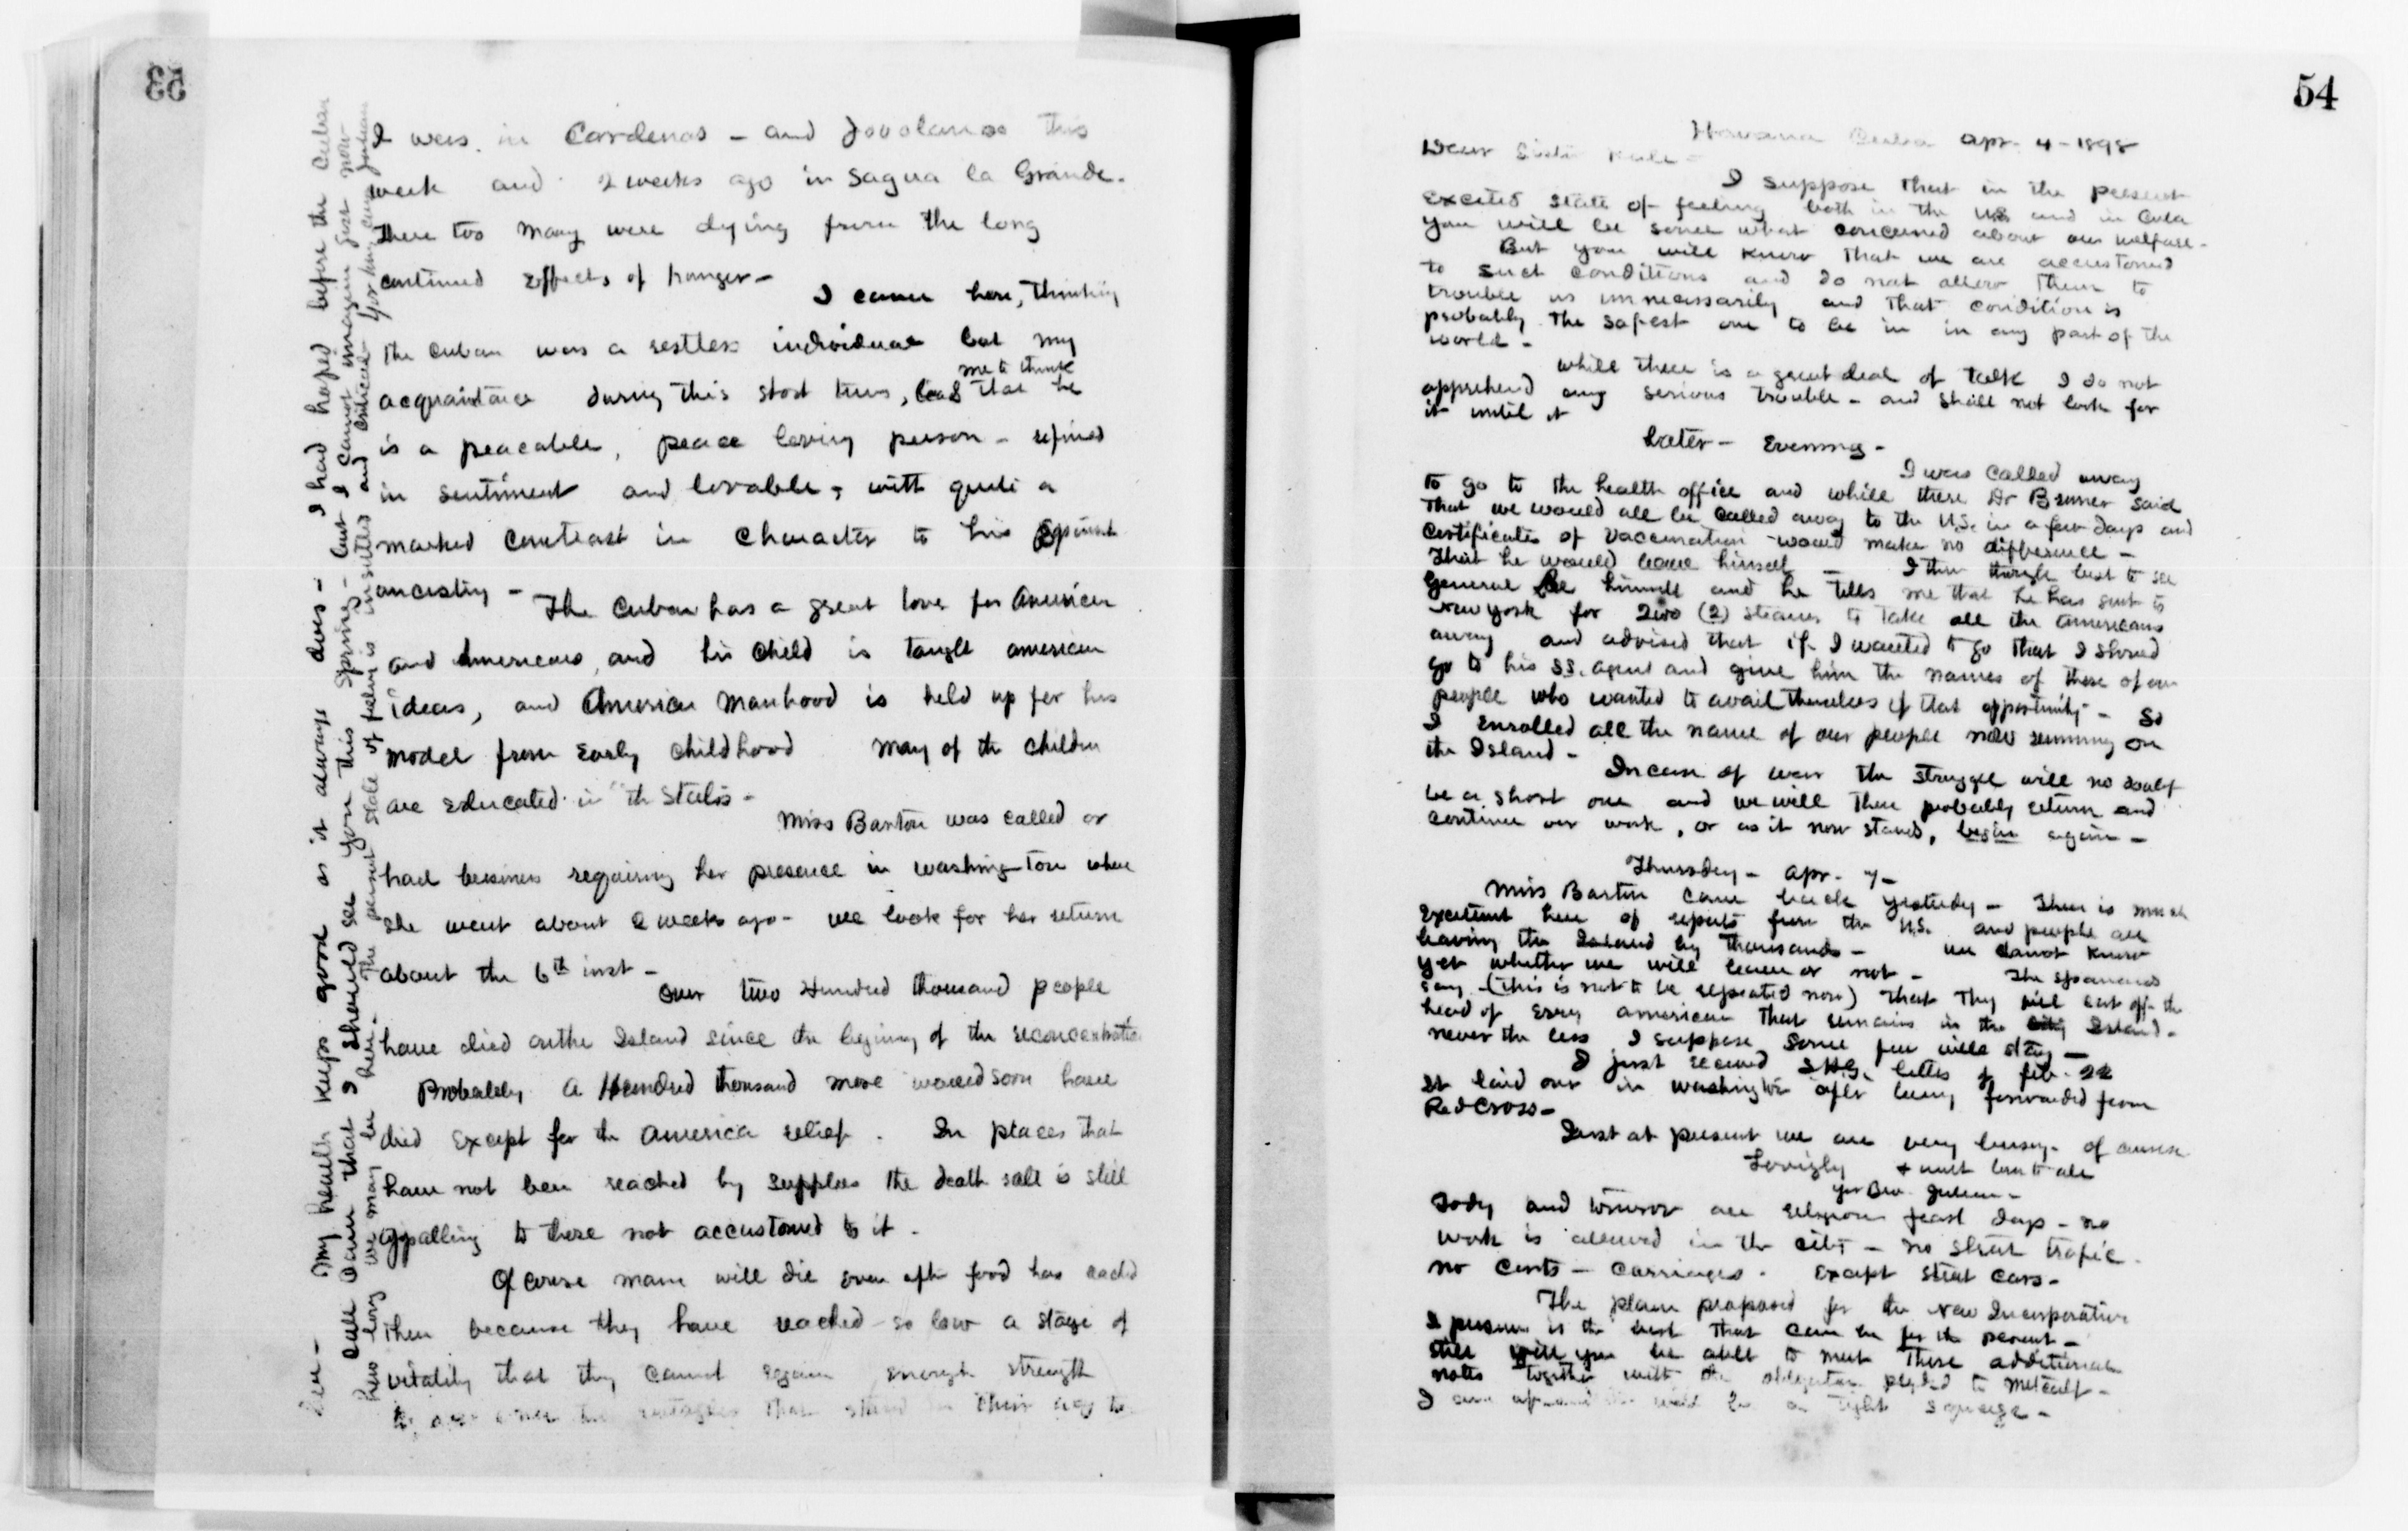 53
I was in Cardenas - and Jovolanos this
week and 2 weeks ago in Sagua la Grande.
There too many were dying from the long
continued effects of hunger -
I came here, thinking
the Cuban was a restless individual but my
me to think
acquaintance during this short time, lead that he
is a peacable, peace loving person - refined
in sentiment and lovable, with quite a
marked contrast in character to his Spanish
ancestry -
The Cuban has a great love for American
and Americans, and his child is taught american
ideas, and American Manhood is held up for his
model from early childhood many of the children
are educated in the States -
Miss Barton was called or
had business requiring her presence in Washington where
she went about 2 weeks ago - we look for her return
about the 6th inst -
Over two Hundred thousand people
have died on the Island since the begining of the reconcentration
Probably a Hundred thousand more would soon have
died except for the America relief. In places that
have not been reached by supplies the death rate is still
appalling to those not accustomed to it.
Of course many will die even after food has reached
them because they have reached so low a stage of
vitality that they cannot regain enough strength
that stand in their way to
here -
My health keeps good as it always does - I had hoped before the Cuban
call came that I should see you this Spring - but I cannot imagine just now
how long we may be here - The present state of feeling is unsettled and critical - Your loving Julian
54
Havana Cuba Apr. 4 - 1898
Dear Sister
I suppose that in the present
excited state of feeling both in the US and in Cuba
you will be some what concerned about our welfare -
But you will know that we are accustomed
to such conditions and do not allow them to
trouble us unnecessarily and that condition is
probably the safest one to be in in any part of the
world -
While there is a great deal of talk I do not
apprehend any serious trouble - and shall not look for
it until it
Later - Evening -
I was called away
to go to the health office and while there Dr Brunner said
that we would all be called away to the U.S. in a few days and
certificates of vaccination would make no difference -
That he would leave himself - I then thought best to see
General Lee himself and he tells me that he has sent to
New York for two (2) steamers to take all the Americans
away and advised that if I wanted to go that I should
go to his SS. agent and give him the names of those of our
people who wanted to avail themselves of that opportunity - So
I enrolled all the name of our people now running on
the Island -
In case of war the struggle will no doubt
be a short one and we will then probably return and
continue our work, or as it now stands, begin again -
Thursday - Apr. 7 -
Miss Barton came back yesterday - There is much
excitement here of reports from the U.S. and people are
leaving the Island by thousands - we cannot know
yet whether we will leave or not - The Spaniards
say (this is not to be repeated now) that they will cut off the
head of every American that remains in the Island -
never the less I suppose some few will stay -
I just received letter of Feb. 22
It laid over in Washington after being forwarded from
Red Cross -
Just at present we are very busy - of course
Lovingly & with love to all
your Bro. Julian -
Today and tomorrow are religious feast days - no
work is allowed in the city - no street trafic
no carts - carriages. Except street cars -
The plan proposed for the New Incorporation
I presume is the best that can be for the present -
Still will you be able to meet these additional
notes together with the obligation pledged to Metcalf -
I am afraid it will be a tight squeeze -